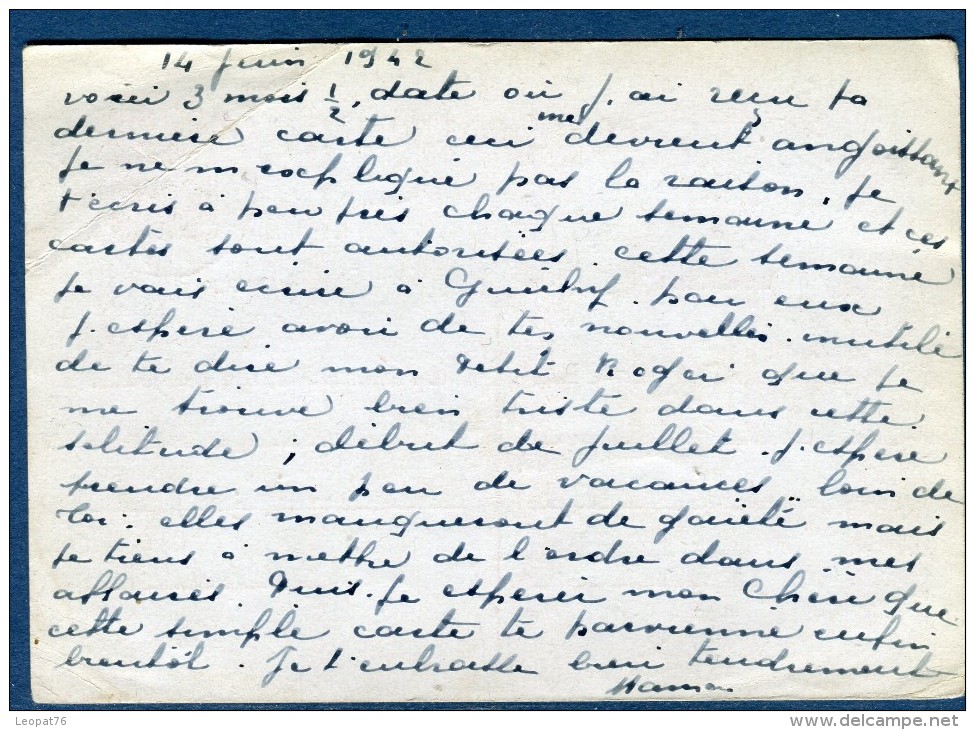 14 Juin 1942
voici 3 mois 1/2, date où j'ai reçu ta
dernière carte ceci me devient angoissant
je ne m'explique pas la raison, je
t'écris à peu près chaque semaine et ces
cartes sont autorisées. cette semaine
je vais écrire à par eux
j'espère avoir de tes nouvelles. inutile
de te dire mon Petit Roger que je
me trouve bien triste dans cette
solitude ; début de juillet. j'espère
prendre un peu de vacances loin de
toi. elles manqueront de gaieté mais
je tiens à mettre de l'ordre dans mes
affaires. Puis-je espérer mon Chéri que
cette simple carte te parvienne enfin
bientôt. Je t'embrasse bien tendrement
Maman
Leopat76
delcampe.net